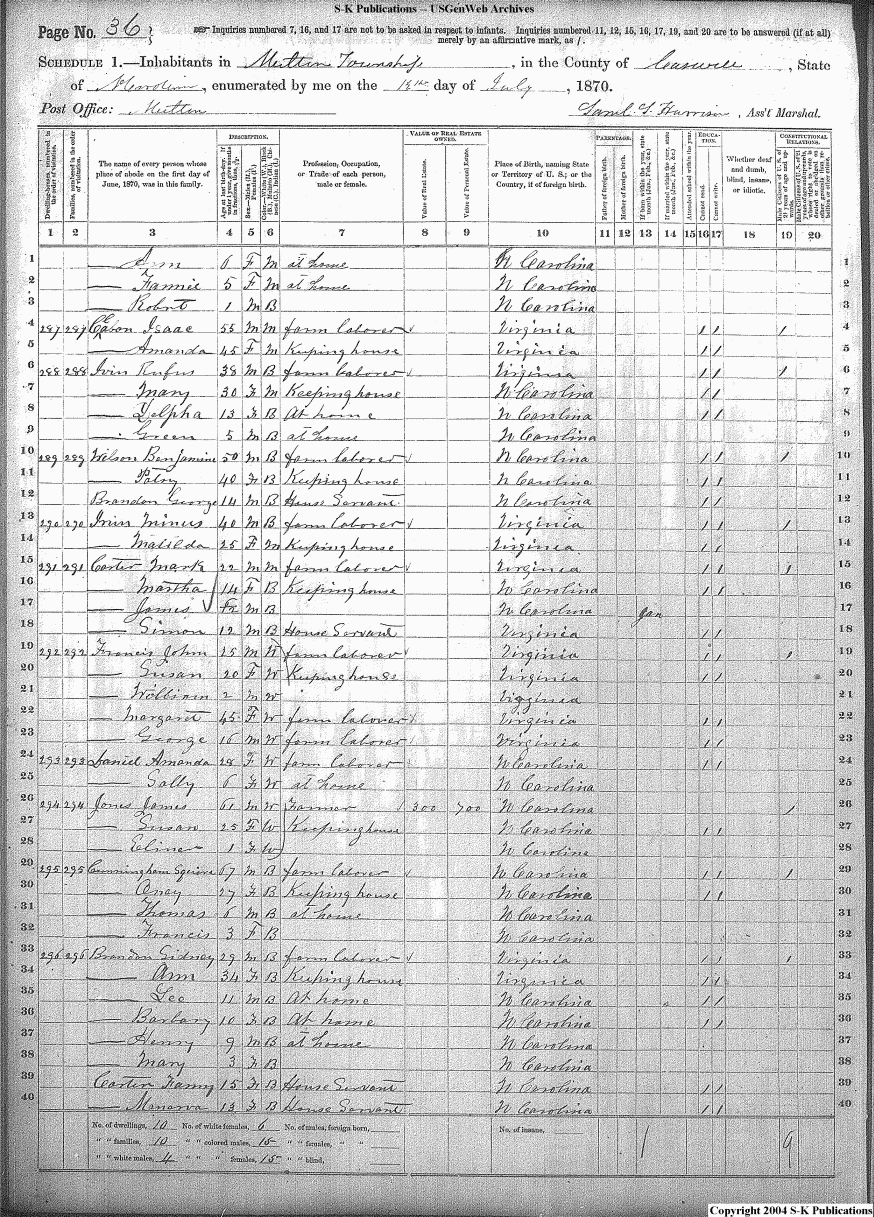 S-K Publications – USGenWeb Archives
Page No. 36
Inquiries numbered 7, 16, and 17 are not to be asked in respect to infants. Inquiries numbered 11, 12, 15, 16, 17, 19, and 20 are to be answered (if at all)
merely by an affirmative mark, as /.
SCHEDULE 1.—Inhabitants in Township, in the County of Caswell, State
of N Carolina, enumerated by me on the day of July, 1870.
Post Office: Harrison, Ass't Marshal.
DESCRIPTION. VALUE OF REAL ESTATE OWNED. PARENTAGE. EDUCATION. CONSTITUTIONAL RELATIONS.
Dwelling-houses, numbered in the order of visitation. Families, numbered in the order of visitation. The name of every person whose place of abode on the first day of June, 1870, was in this family. Sex.—Males (M.), Females (F.) Profession, Occupation, or Trade of each person, male or female. Value of Real Estate. Value of Personal Estate. Place of Birth, naming State or Territory of U. S.; or the Country, if of foreign birth. Father of foreign birth. Mother of foreign birth. If born within the year, state month (Jan., Feb., &c.) If married within the year, state month (Jan., Feb., &c.) Attended school within the year. Cannot read. Cannot write. Whether deaf and dumb, blind, insane, or idiotic.
1 2 3 4 5 6 7 8 9 10 11 12 13 14 15 16 17 18 19 20
1 — Ann 6 F M at home N Carolina 1
2 — Fannie 5 F M at home N Carolina 2
3 — Robert 1 M B N Carolina 3
4 287 287 Isaac 55 M M farm laborer Virginia / / / 4
5 — Amanda 45 F M Keeping house Virginia / / 5
6 288 288 Ivin Rufus 38 M B farm laborer Virginia / / / 6
7 — Mary 30 F M Keeping house N Carolina / / 7
8 — Delpha 13 F B At home N Carolina / / 8
9 — Green 5 M B at home N Carolina 9
10 289 289 Wilson Benjamine 50 M B farm laborer N Carolina / / / 10
11 — Patsy 40 F B Keeping house N Carolina / / 11
12 Brandon George 14 M B House Servant N Carolina / / 12
13 290 290 Irvin Minus 40 M B farm laborer Virginia / / / 13
14 — Matilda 25 F M Keeping house Virginia / / 14
15 291 291 Carter Mark 22 M M farm laborer Virginia / / / 15
16 — Martha 14 F B Keeping house N Carolina / / 16
17 — James M B N Carolina Jan 17
18 — Simon 12 M B House Servant Virginia / / 18
19 292 292 Francis John 25 M W farm laborer Virginia / / / 19
20 — Susan 20 F W Keeping house Virginia / / 20
21 — William 2 M W Virginia 21
22 — Margaret 45 F W farm laborer Virginia / / 22
23 — George 16 M W farm laborer Virginia / / 23
24 293 293 Daniel Amanda 28 F W farm laborer N Carolina / / 24
25 — Sally 6 F W at home N Carolina 25
26 294 294 Jones James 61 M W Farmer 300 700 N Carolina / 26
27 — Susan 25 F W Keeping house N Carolina / / 27
28 — Eliner 1 F W N Carolina 28
29 295 295 Cunningham Squire 67 M B farm laborer N Carolina / / / 29
30 — Aney 27 F B Keeping house N Carolina / / 30
31 — Thomas 6 M B at home N Carolina 31
32 — Francis 3 F B N Carolina 32
33 296 296 Brandon Sidney 29 M B farm laborer Virginia / / / 33
34 — Ann 34 F B Keeping house Virginia / / 34
35 — Lee 11 M B At home N Carolina / / 35
36 — Barbary 10 F B At home N Carolina / / 36
37 — Henry 9 M B at home N Carolina 37
38 — Mary 3 F B N Carolina 38
39 Carter Fanny 15 F B House Servant N Carolina / / 39
40 — Manerva 13 F B House Servant N Carolina / / 40
No. of dwellings, 10 No. of white females, 6 No. of males, foreign born, No. of insane, 1 9
" " families, 10 " " colored males, 15 " " females, " "
" " white males, 4 " " " females, 15 " " blind,
Copyright 2004 S-K Publications